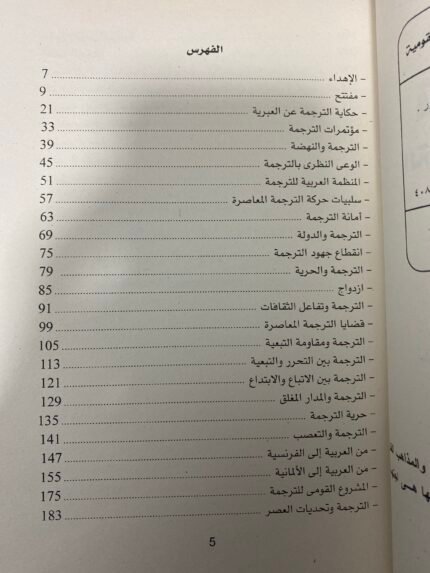 الفهرس
- الإهداء ........ 7
- مفتتح ........ 9
- حكاية الترجمة عن العبرية ........ 21
- مؤتمرات الترجمة ........ 33
- الترجمة والنهضة ........ 39
- الوعى النظرى بالترجمة ........ 45
- المنظمة العربية للترجمة ........ 51
- سلبيات حركة الترجمة المعاصرة ........ 57
- أمانة الترجمة ........ 63
- الترجمة والدولة ........ 69
- انقطاع جهود الترجمة ........ 75
- الترجمة والحرية ........ 79
- ازدواج ........ 85
- الترجمة وتفاعل الثقافات ........ 91
- قضايا الترجمة المعاصرة ........ 99
- الترجمة ومقاومة التبعية ........ 105
- الترجمة بين التحرر والتبعية ........ 113
- الترجمة بين الاتباع والابتداع ........ 121
- الترجمة والمدار المغلق ........ 129
- حرية الترجمة ........ 135
- الترجمة والتعصب ........ 141
- من العربية إلى الفرنسية ........ 147
- من العربية إلى الألمانية ........ 155
- المشروع القومى للترجمة ........ 175
- الترجمة وتحديات العصر ........ 183
5
قومية
٤٠٨
والمذاهب